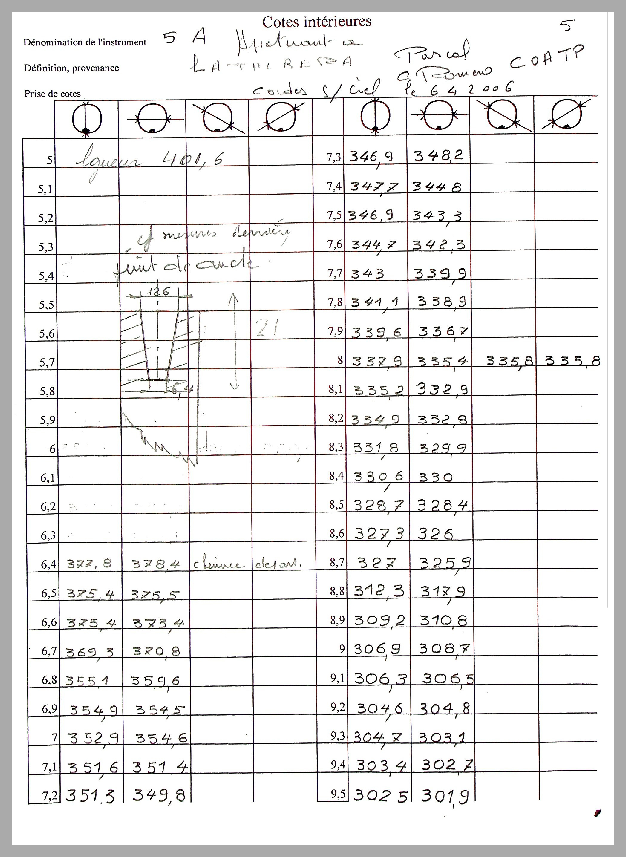 Cotes intérieures
5
Dénomination de l'instrument 5 A
Définition, provenance
Pascal
COATP
Prise de cotes
Cordes s/ Ciel le 6 4 2006
5 lgueur 401,6 7,3 346,9 348,2
5,1 7,4 347,7 344 8
5,2 7,5 346,9 343,3
cf mesures dernière
5,3 7,6 344,7 342,3
5,4 7,7 343 339,9
126
5,5 7,8 341,1 338,9
5,6 21 7,9 339,6 336,7
5,7 8 337,9 335,4 335,8 335,8
5,8 8,1 335,2 332,9
5,9 8,2 334,9 332,8
6 8,3 331,8 329,9
6,1 8,4 330,6 330
6,2 8,5 328,7 328,4
6,3 8,6 327,3 326
6,4 377,8 378,4 8,7 327 325,9
6,5 375,4 375,5 8,8 312,3 317,9
6,6 375,4 373,4 8,9 309,2 310,8
6,7 369,3 370,8 9 306,9 308,7
6,8 355,1 359,6 9,1 306,3 306,5
6,9 354,9 354,5 9,2 304,6 304,8
7 352,9 354,6 9,3 304,7 303,1
7,1 351,6 351,4 9,4 303,4 302,7
7,2 351,3 349,8 9,5 302 5 301,9